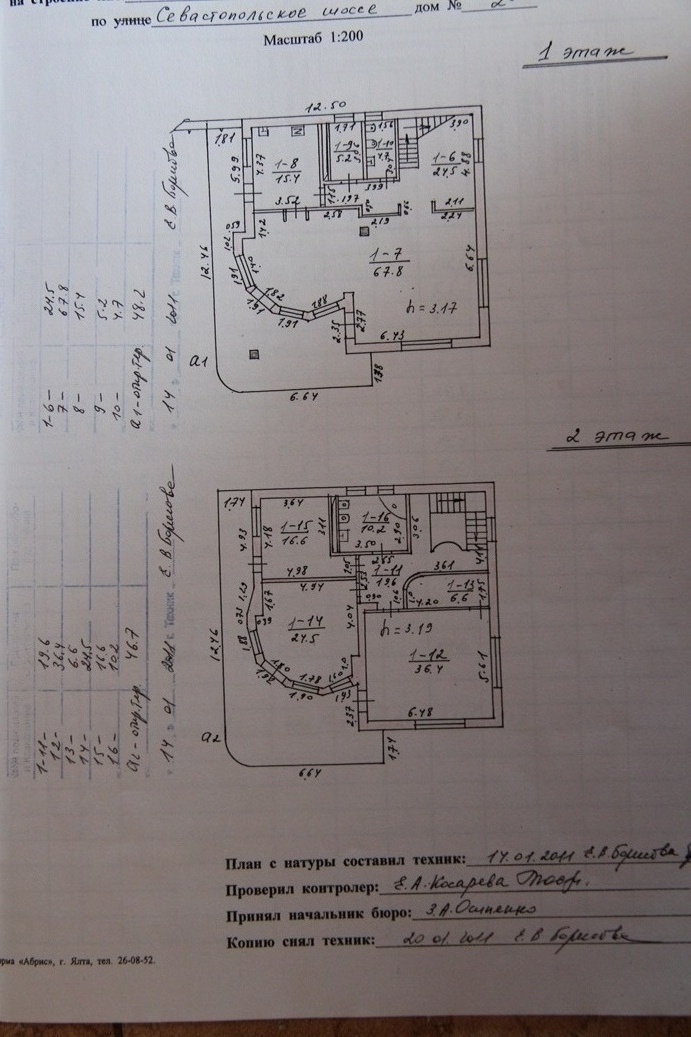 по улице Севастопольское шоссе дом № 2
Масштаб 1:200
1 этаж
12.50
1.81
5.99
4.77
1-8
15.4
3.52
1.71
1-9
5.2
1.56
1-10
4.7
3.90
1-6
24.5
4.88
1.15
1.97
3.99
2.58
2.19
2.11
2.24
1.42
1-7
67.8
6.64
12.46
1.91
1.82
1.91
1.91
1.88
h = 3.17
2.77
2.35
6.43
1.38
6.64
а1
1-6 – 24.5
7 – 67.8
8 – 15.4
9 – 5.2
10 – 4.7
а1 – откр.тер. 48.2
14 01 2011 Е.В. Борисова
2 этаж
1.74
3.64
4.93
4.18
1-15
16.6
4.98
4.94
1-16
10.2
3.50
2.90
3.06
2.65
1-11
19.6
3.61
4.11
1-13
6.6
1.75
4.20
1.29
1.67
1-14
24.5
4.04
h = 3.19
1-12
36.4
5.61
12.46
1.88
1.92
1.80
1.78
1.90
1.93
2.37
6.48
1.74
6.64
а2
1-11 – 19.6
12 – 36.4
13 – 6.6
14 – 24.5
15 – 16.6
16 – 10.2
а2 – откр.тер. 46.7
14 01 2011 г. Техник Е.В. Борисова
План с натуры составил техник: 14.01.2011 Е.В. Борисова
Проверил контролер: Е.А. Косарева
Принял начальник бюро: З.А. Остапенко
Копию снял техник: 20 01 2011 Е.В. Борисова
рма «Абрис», г. Ялта, тел. 26-08-52.